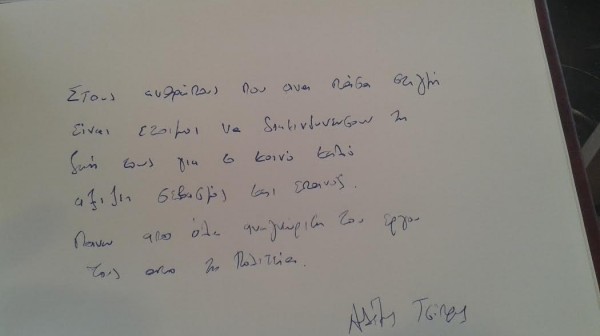 Στους ανθρώπους που ανα πάσα στιγμή
είναι ετοιμοι να διακινδυνευσουν τη
ζωή τους για το κοινό καλό
αξιζει σεβασμός και επαινος.
Πανω απο όλα αναγνώριση του εργου
τους απο τη Πολιτεία.
Αλέξης Τσίπρας